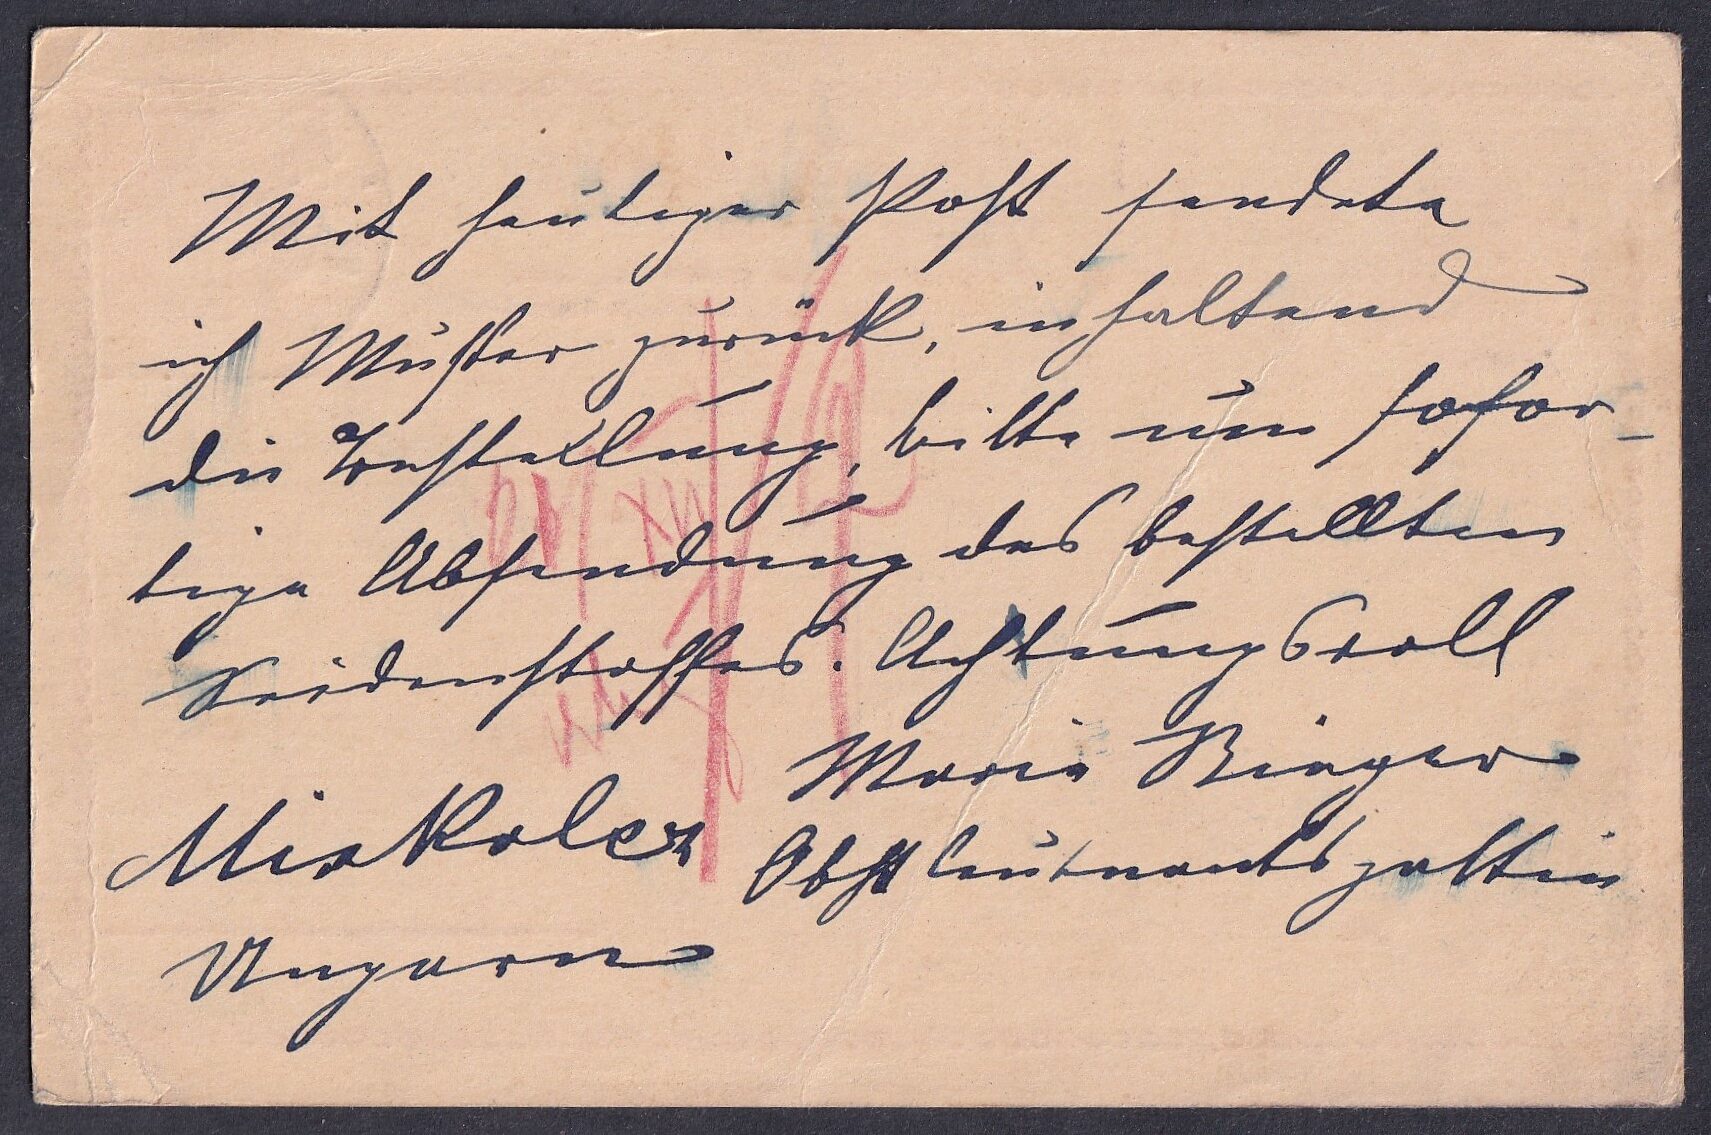 Mit heutiger Post sendete
ich Muster zurück, inhaltend
die Bestellung, bitte um sofor-
tige Absendung des bestellten
Seidenstoffes. Achtungsvoll
Marie Rieger
Miskolcz Obstleutnantsgattin
Ungarn